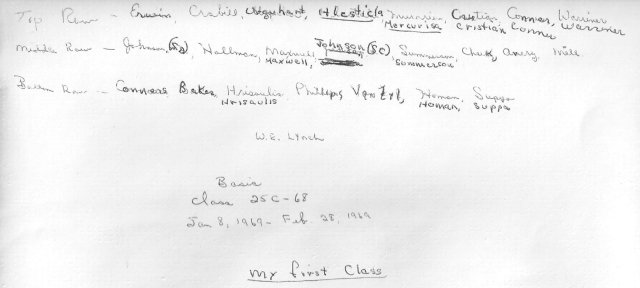 Top Row – Erwin, Crabill, Urquhart, Hlesticla, Cristian, Conner, Warriner
Mercurisa Cristian Conner Warriner
Middle Row – Johnson, Hallman, Maxwell, Johnson (SC), Summerson, Cheek, Avery, Mills
Maxwell, Sommerson
Bottom Row – Connors Baker, Hrisaulis, Phillips, Van Zyl, Homan, Suppa
Hrisaulis Homan, Suppa
W.E. Lynch
Basic
Class 25C-68
Jan 8, 1969 – Feb 28, 1969
My First Class